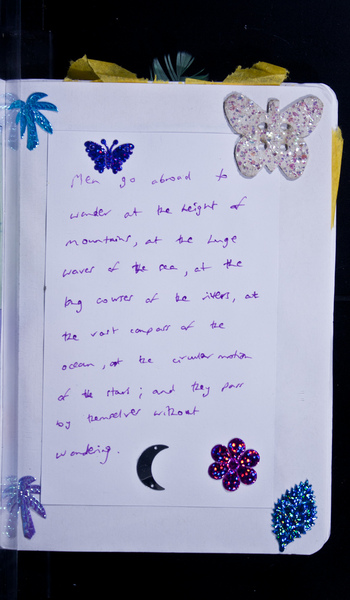 Men go abroad to
wander at the height of
mountains, at the huge
waves of the sea, at the
long courses of the rivers, at
the vast compass of the
ocean, at the circular motion
of the stars; and they pass
by themselves without
wondering.